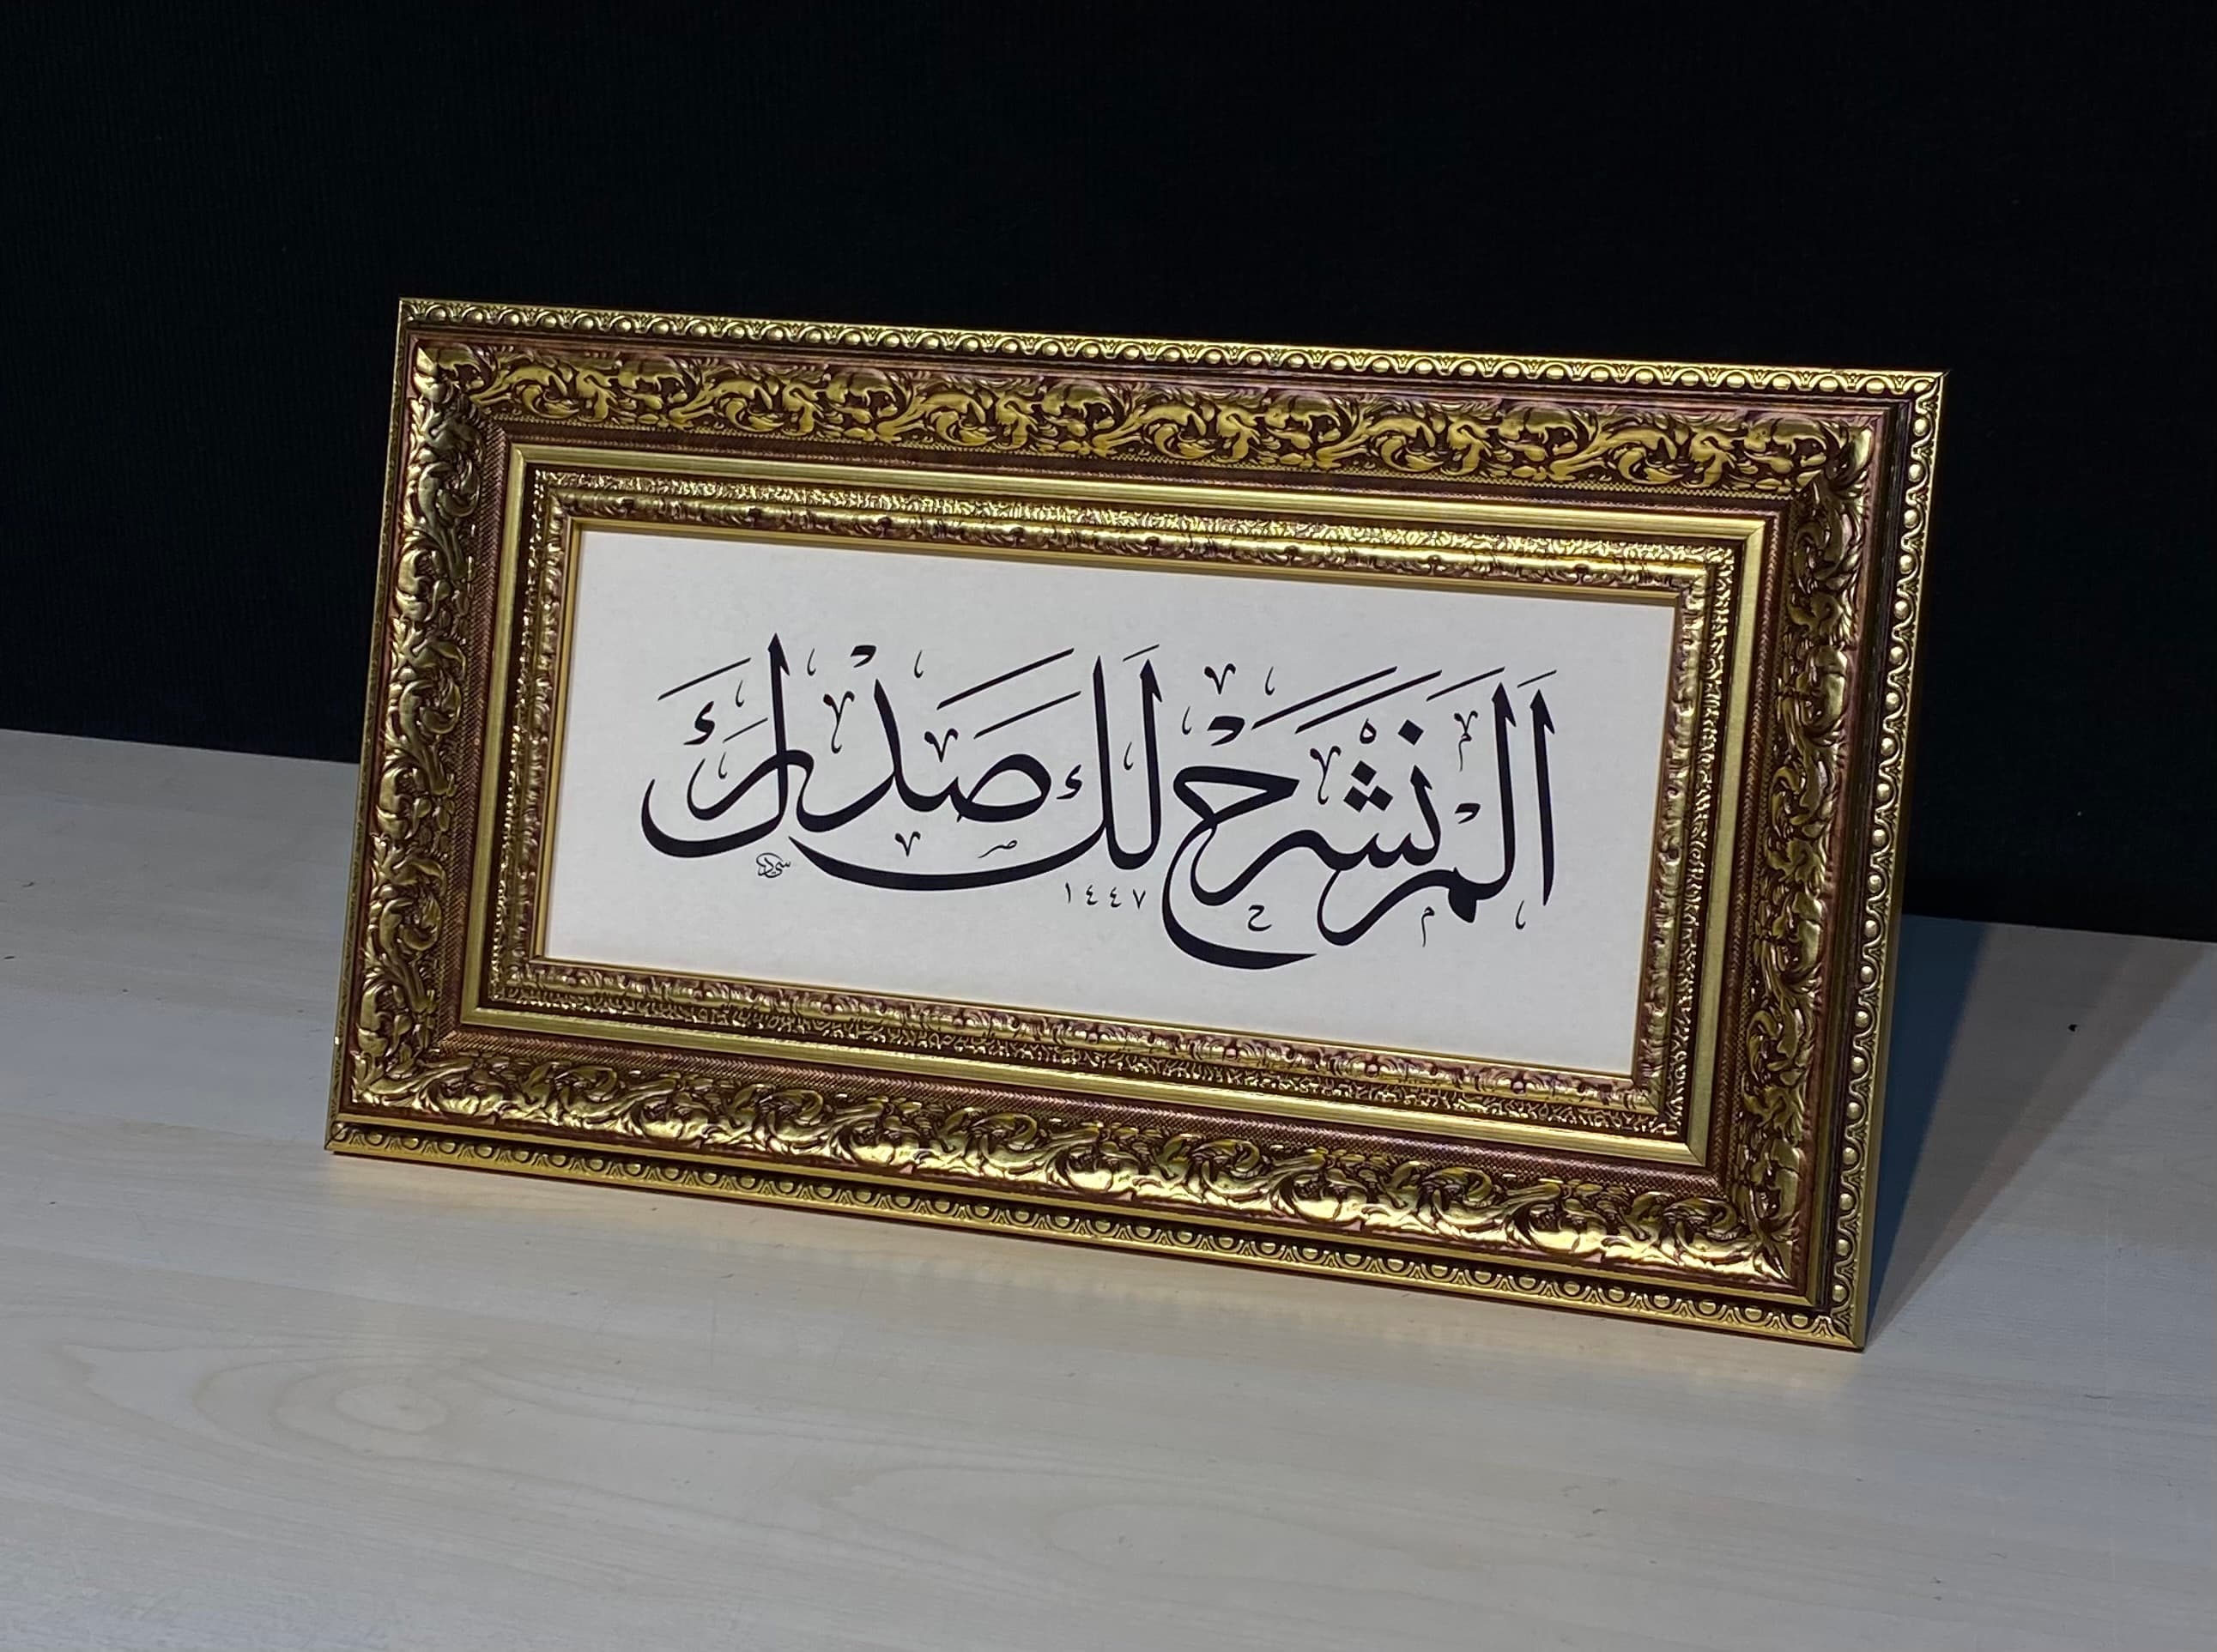 أَلَمْ نَشْرَحْ لَكَ صَدْرَكَ
١٤٤٧